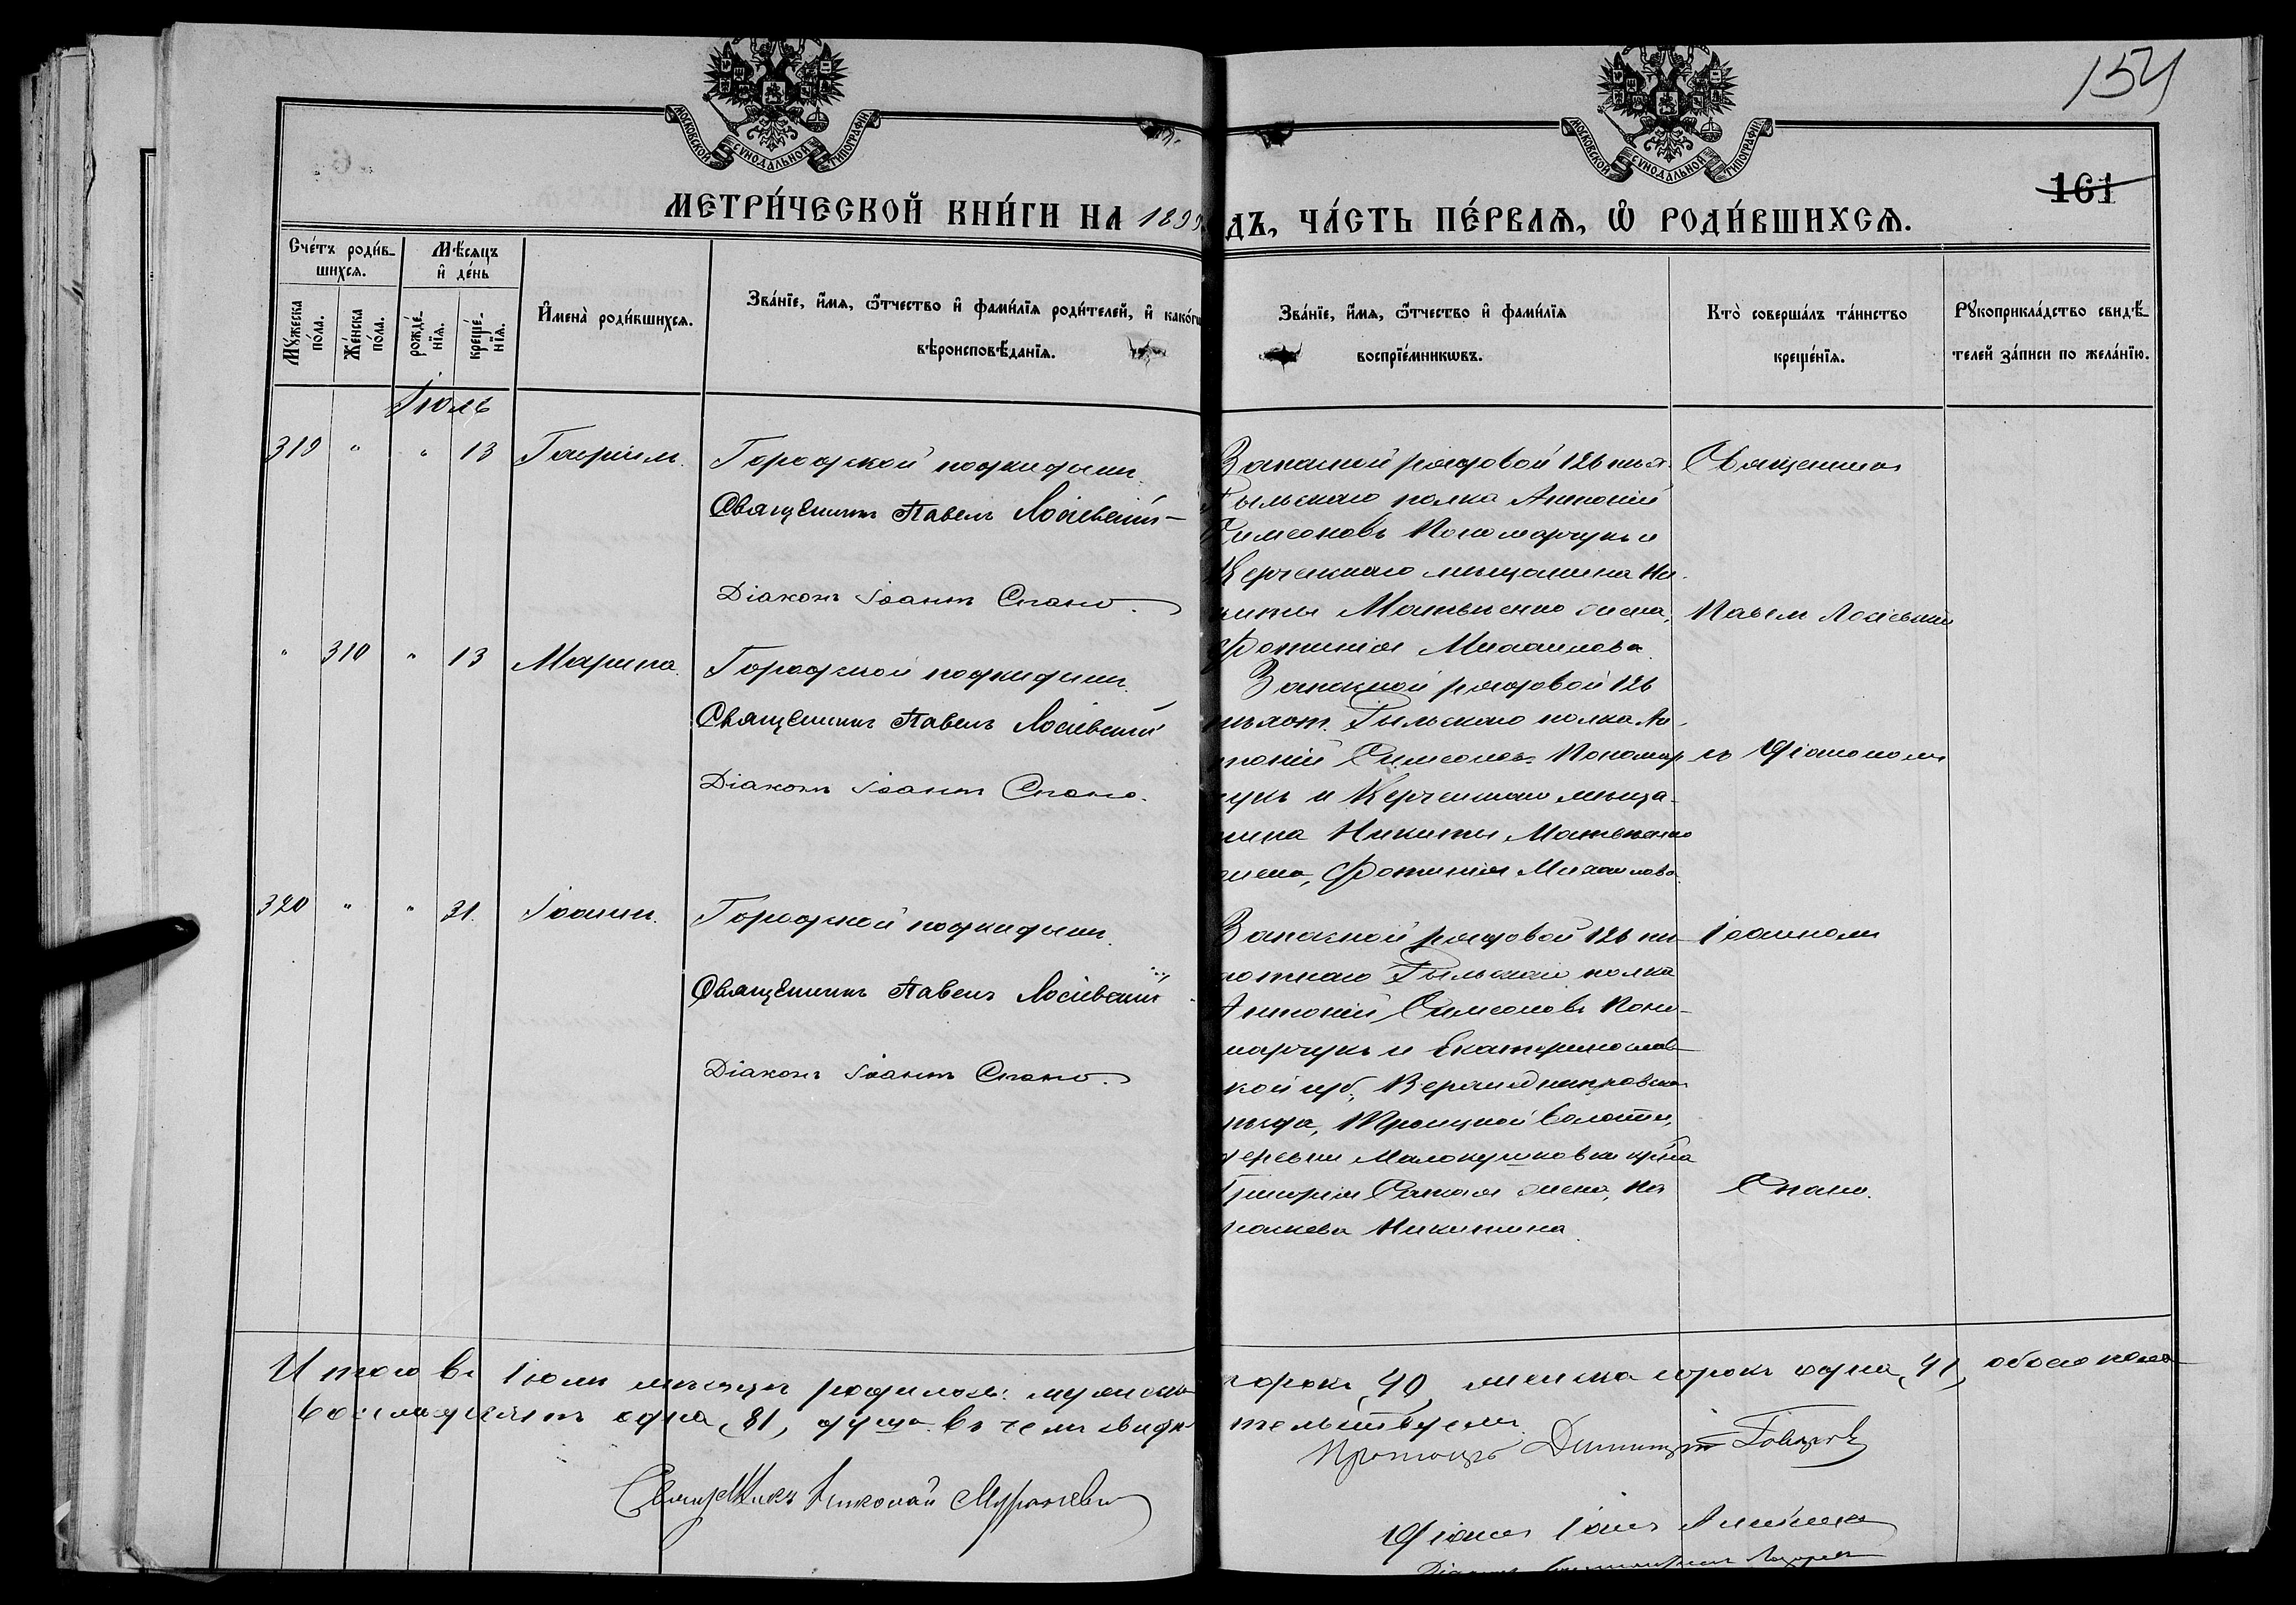 154
161
МОСКОВСКОЙ СѴНОДАЛЬНОЙ ТИПОГРАФІИ
МОСКОВСКОЙ СѴНОДАЛЬНОЙ ТИПОГРАФІИ
МЕТРИ́ЧЕСКОЙ КНИ́ГИ НА 1899
ДЪ, ЧА́СТЬ ПЕ́РВАЯ, Ѡ РОДИ́ВШИХСЯ.
Сче́тъ роди́в-
шихся.
Мѣ́сяцъ
и де́нь
Мꙋ́жеска
по́ла.
Же́нска
по́ла.
рожде́-
нїя.
креще́-
нїя.
И҆мена̀ роди́вшихся.
Зва́нїе, и҆́мя, ѻ҆́тчество и҆ фами́лїя роди́телей, и҆ како́гѡ
вѣроисповѣ́данїя.
Зва́нїе, и҆́мя, ѻ҆́тчество и҆ фами́лїя
воспрїе́мникѡвъ.
Кто̀ соверша́лъ та́инство
креще́нїя.
Рꙋкоприкла́дство свидѣ́-
телей за́писи по жела́нїю.
Іюль
319 " " 13 Гавріилъ. Городской подкидышъ.
Священникъ Павелъ Лосіевскій
Діаконъ Іоаннъ Спано.
Запасной рядовой 126 пѣх.
Рыльскаго полка Антоній
Симеоновъ Пономарчукъ и
Керченскаго мѣщанина Ни-
киты Матвѣенко жена,
Фотинія Михаилова.
Священникъ
Павелъ Лосіевскій
" 310 " 13 Марина. Городской подкидышъ.
Священникъ Павелъ Лосіевскій
Діаконъ Іоаннъ Спано.
Запасной рядовой 126
пѣхот. Рыльскаго полка Ан-
тоній Симеоновъ Пономар-
чукъ и Керченскаго мѣща-
нина Никиты Матвѣенко
жена, Фотинія Михаилова.
съ Діакономъ
320 " " 31. Іоаннъ. Городской подкидышъ.
Священникъ Павелъ Лосіевскій
Діаконъ Іоаннъ Спано.
Запасной рядовой 126 пѣ-
хотнаго Рыльскаго полка
Антоній Симеоновъ Поно-
марчукъ и Екатеринослав-
ской губ, Верхнеднѣпровскаго
уѣзда, Троицкой волости,
деревни
Григорія жена, Па-
раскева Никитина.
Іоанномъ
Спано.
Итого въ Іюлѣ мѣсяцѣ родилось: мужеска
сорокъ, 40, женска сорокъ одна, 41, обоего пола
восемьдесятъ одна, 81, душа. въ чемъ свидѣ-
тельствуемъ
Священникъ Николай
Протоіер. Димитрій
Діаконъ
Діаконъ